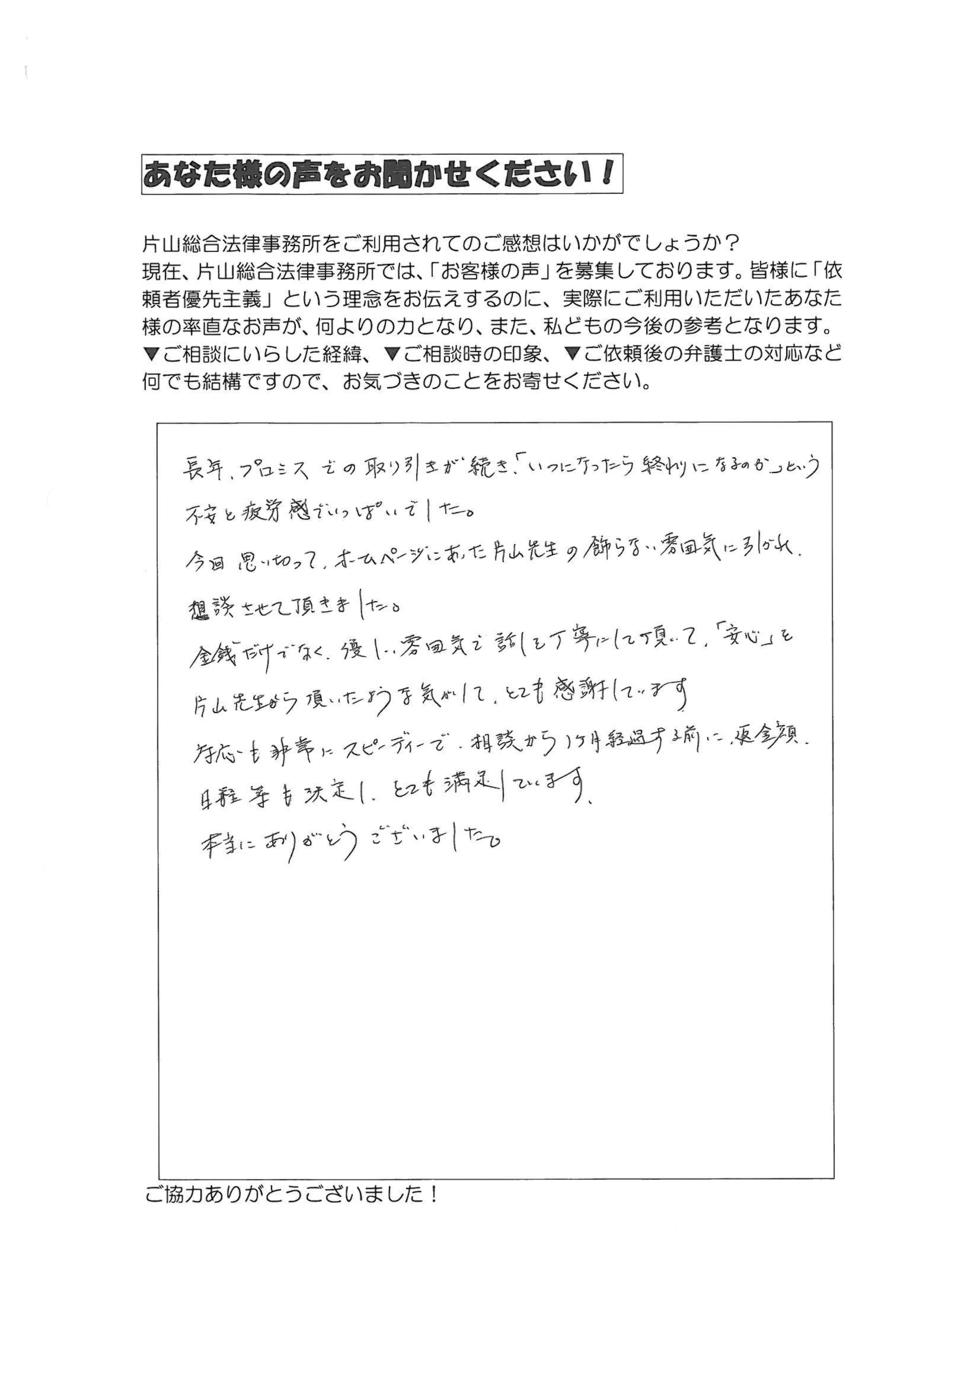 あなた様の声をお聞かせください！
片山総合法律事務所をご利用されてのご感想はいかがでしょうか？
現在、片山総合法律事務所では、「お客様の声」を募集しております。皆様に「依
頼者優先主義」という理念をお伝えするのに、実際にご利用いただいたあなた
様の率直なお声が、何よりの力となり、また、私どもの今後の参考となります。
▼ご相談にいらした経緯、▼ご相談時の印象、▼ご依頼後の弁護士の対応など
何でも結構ですので、お気づきのことをお寄せください。
長年、プロミスでの取り引きが続き、「いつになったら終わりになるのか」という
不安と疲労感でいっぱいでした。
今回思い切って、ホームページにあった片山先生の飾らない雰囲気に引かれ、
想談させて頂きました。
金銭だけでなく、優しい雰囲気で話しを丁寧にして頂いて、「安心」を
片山先生から頂いたような気がして、とても感謝しています。
対応も非常にスピーディーで、相談から1ヶ月経過する前に、返金額、
日程等も決定し、とても満足しています。
本当にありがとうございました。
ご協力ありがとうございました！